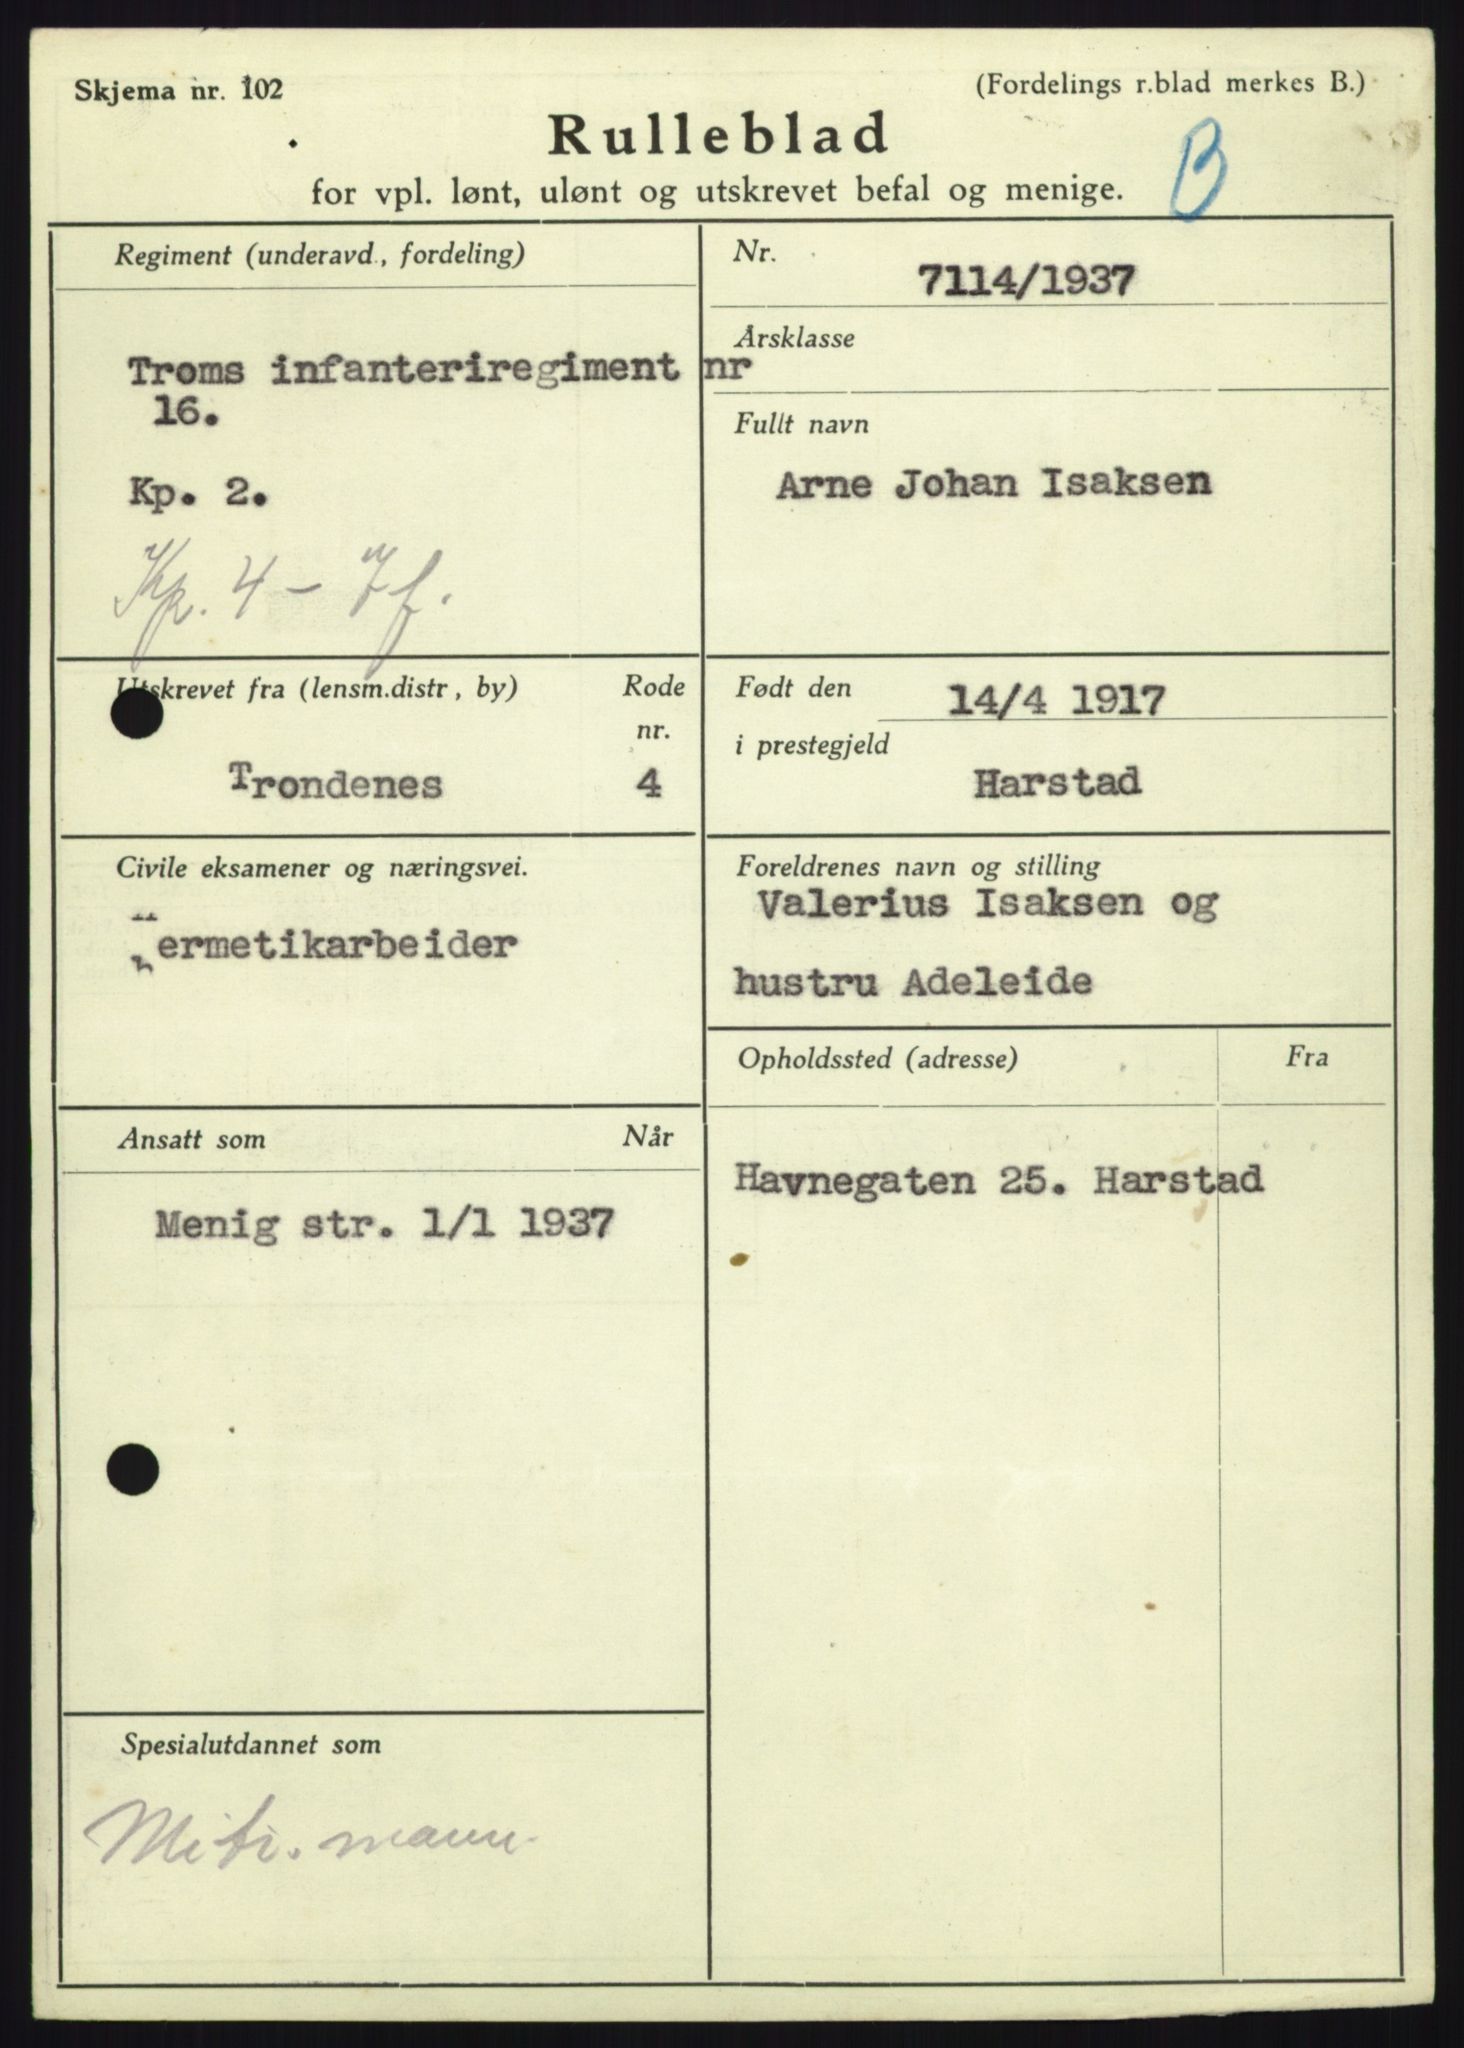 Skjema nr. 102
(Fordelings r.blad merkes B.)
Rulleblad
B
for vpl. lønt, ulønt og utskrevet befal og menige.
Regiment (underavd., fordeling)
Troms infanteriregiment nr
16.
Kp. 2.
Kp. 4 - 7f.
Nr.
7114/1937
Årsklasse
Fullt navn
Arne Johan Isaksen
Utskrevet fra (lensm.distr, by)
Rode
nr.
Trondenes
4
Født den
14/4 1917
i prestegjeld
Harstad
Civile eksamener og næringsvei.
Hermetikarbeider
Foreldrenes navn og stilling
Valerius Isaksen og
hustru Adeleide
Opholdssted (adresse)
Fra
Havnegaten 25. Harstad
Ansatt som
Når
Menig str. 1/1 1937
Spesialutdannet som
Mitr. mann